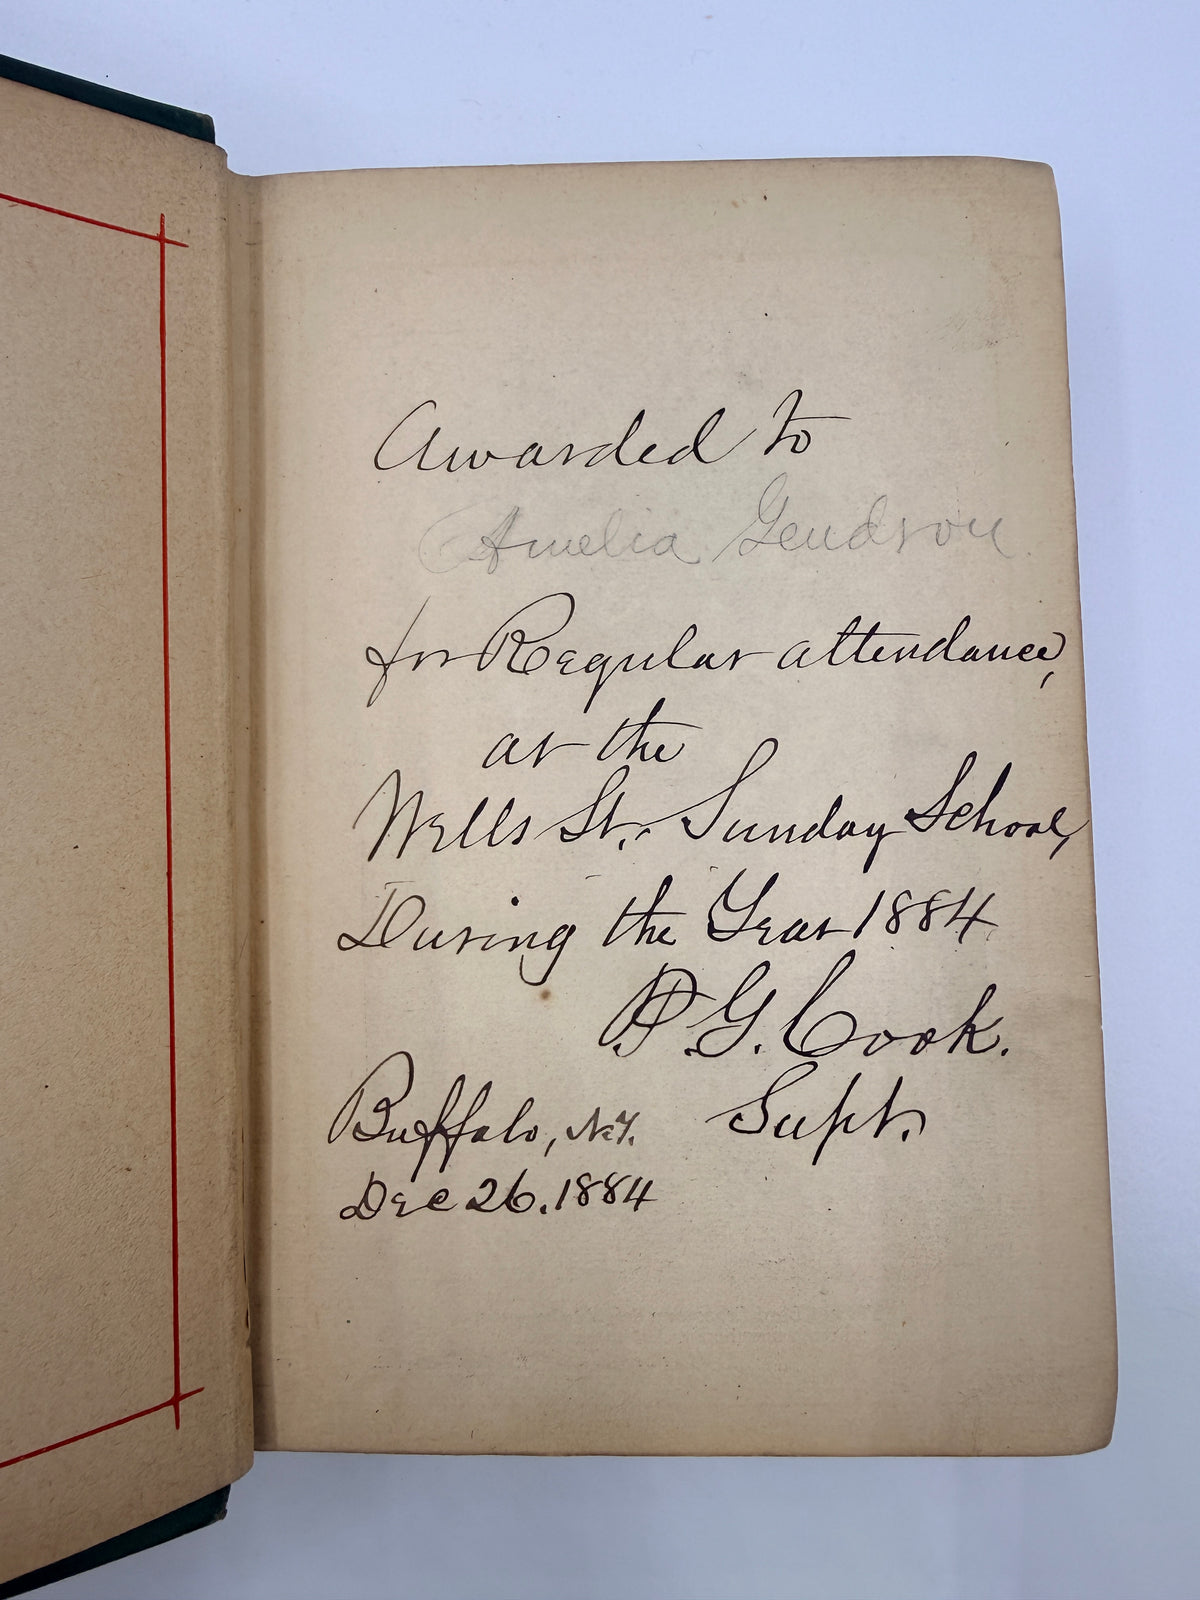 Awarded to
Amelia Gendron
for Regular attendance,
at the
Wells St. Sunday School,
During the Year 1884
P. G. Cook.
Buffalo, N.Y. Supt.
Dec 26. 1884